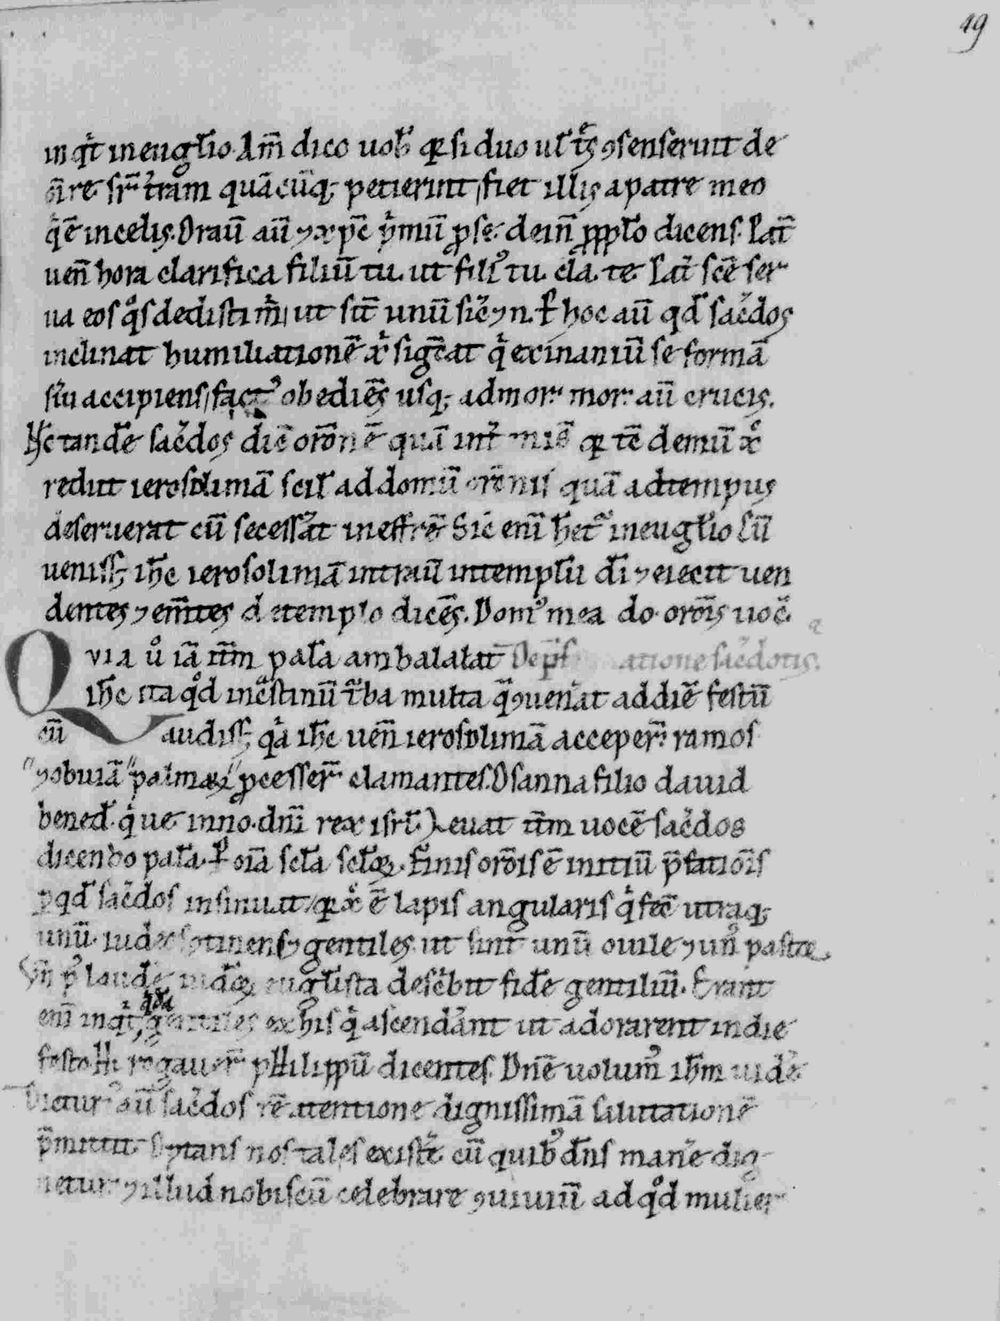 49
in qͥt in euḡlio. Am̄ dico uob̄ qꝛ si duo ul̄ tͤs ꝯsenserint de
oī re sr̄ t̄ram quācūq; petierint, fiet illis a patre meo
q̇ ē in celis. Orau̅ au̅ ⁊ xp̄c p̍mū ꝓ se. dein̄ ꝓ pplo dicens. Pat̄
uen̄ hora clarifica filiū tu. ut filiꝰ tu. cla. te. Pat̄ scē ser
ua eos qͦs dedisti m̍, ut sīt unū sic̄ ⁊ n. P hoc au̅ qd̄ sac̄dos
inclinat humilationē xp̍ sigc̄at q̍ exinaniu̅ se formā
sū̍ accipiens, factꝰ obediēs usq; ad mor. mor. au̅ crucis.
tandē sac̄dos dic̄ orōnē quā int̄ qꝛ tc̄ demū xp̄
rediit ierosolimā scil̄ ad domū quā ad tempus
deseruerat cū secess̍at in effrē. Sic̄ enī hētꝰ in euḡlio Cū
uenisss; ih̄c ierosolimā intrau̅ in templū dī ⁊ eiecit uen
dentes ⁊ em̄tes de templo dicēs. Domꝰ mea do. orōis uoc̄.
Qvia ů iā itm̄ palā ambalat̄ sac̄dotis.
ih̄c ita qͦd in c̄stinū t̄ba multa qͣ ꝯuen̍at ad diē festū
cū audiss; qͥa ih̄c uen̄ ierosolimā acceper̄ ramos
⁊ obuiā palmaꝝ ꝓcesser̄ clamantes. Osanna filio dauid
bened̄. q̍ ue. in no. dn̄i rex isrl̄. Leuat itm̄ uocē sac̄dos
dicendo palā. P oīa scl̄a scl̄oꝝ. Finis orōis ē initiū p̄fatiōis
ꝑ qd̄ sac̄dos insinuat, qꝛ xp̄ ē lapis angularis q̍ fec̄ utraq;
unū. ⁊ gentiles ut sint unū ouile ⁊ unꝰ pastor.
pꝰ laudē iudeoꝝ euḡlista desc̄bit fidē gentiliū. Erant
enī inqͥt, gentiles ex his q̍ ascend̍ant ut adorarent in die
festo. Hi rogauer̄ phylippū dicentes. Dn̄e uolumꝰ ih̄m uidē
Dictur au̅ sac̄dos dignissimā salutationē
p̄mittit. optans nos tales exist̄e. cū quibꝰ dn̄s manē dig
netur. ⁊ illud nobiscū celebrare ꝯuiuiū ad qͦd mulier